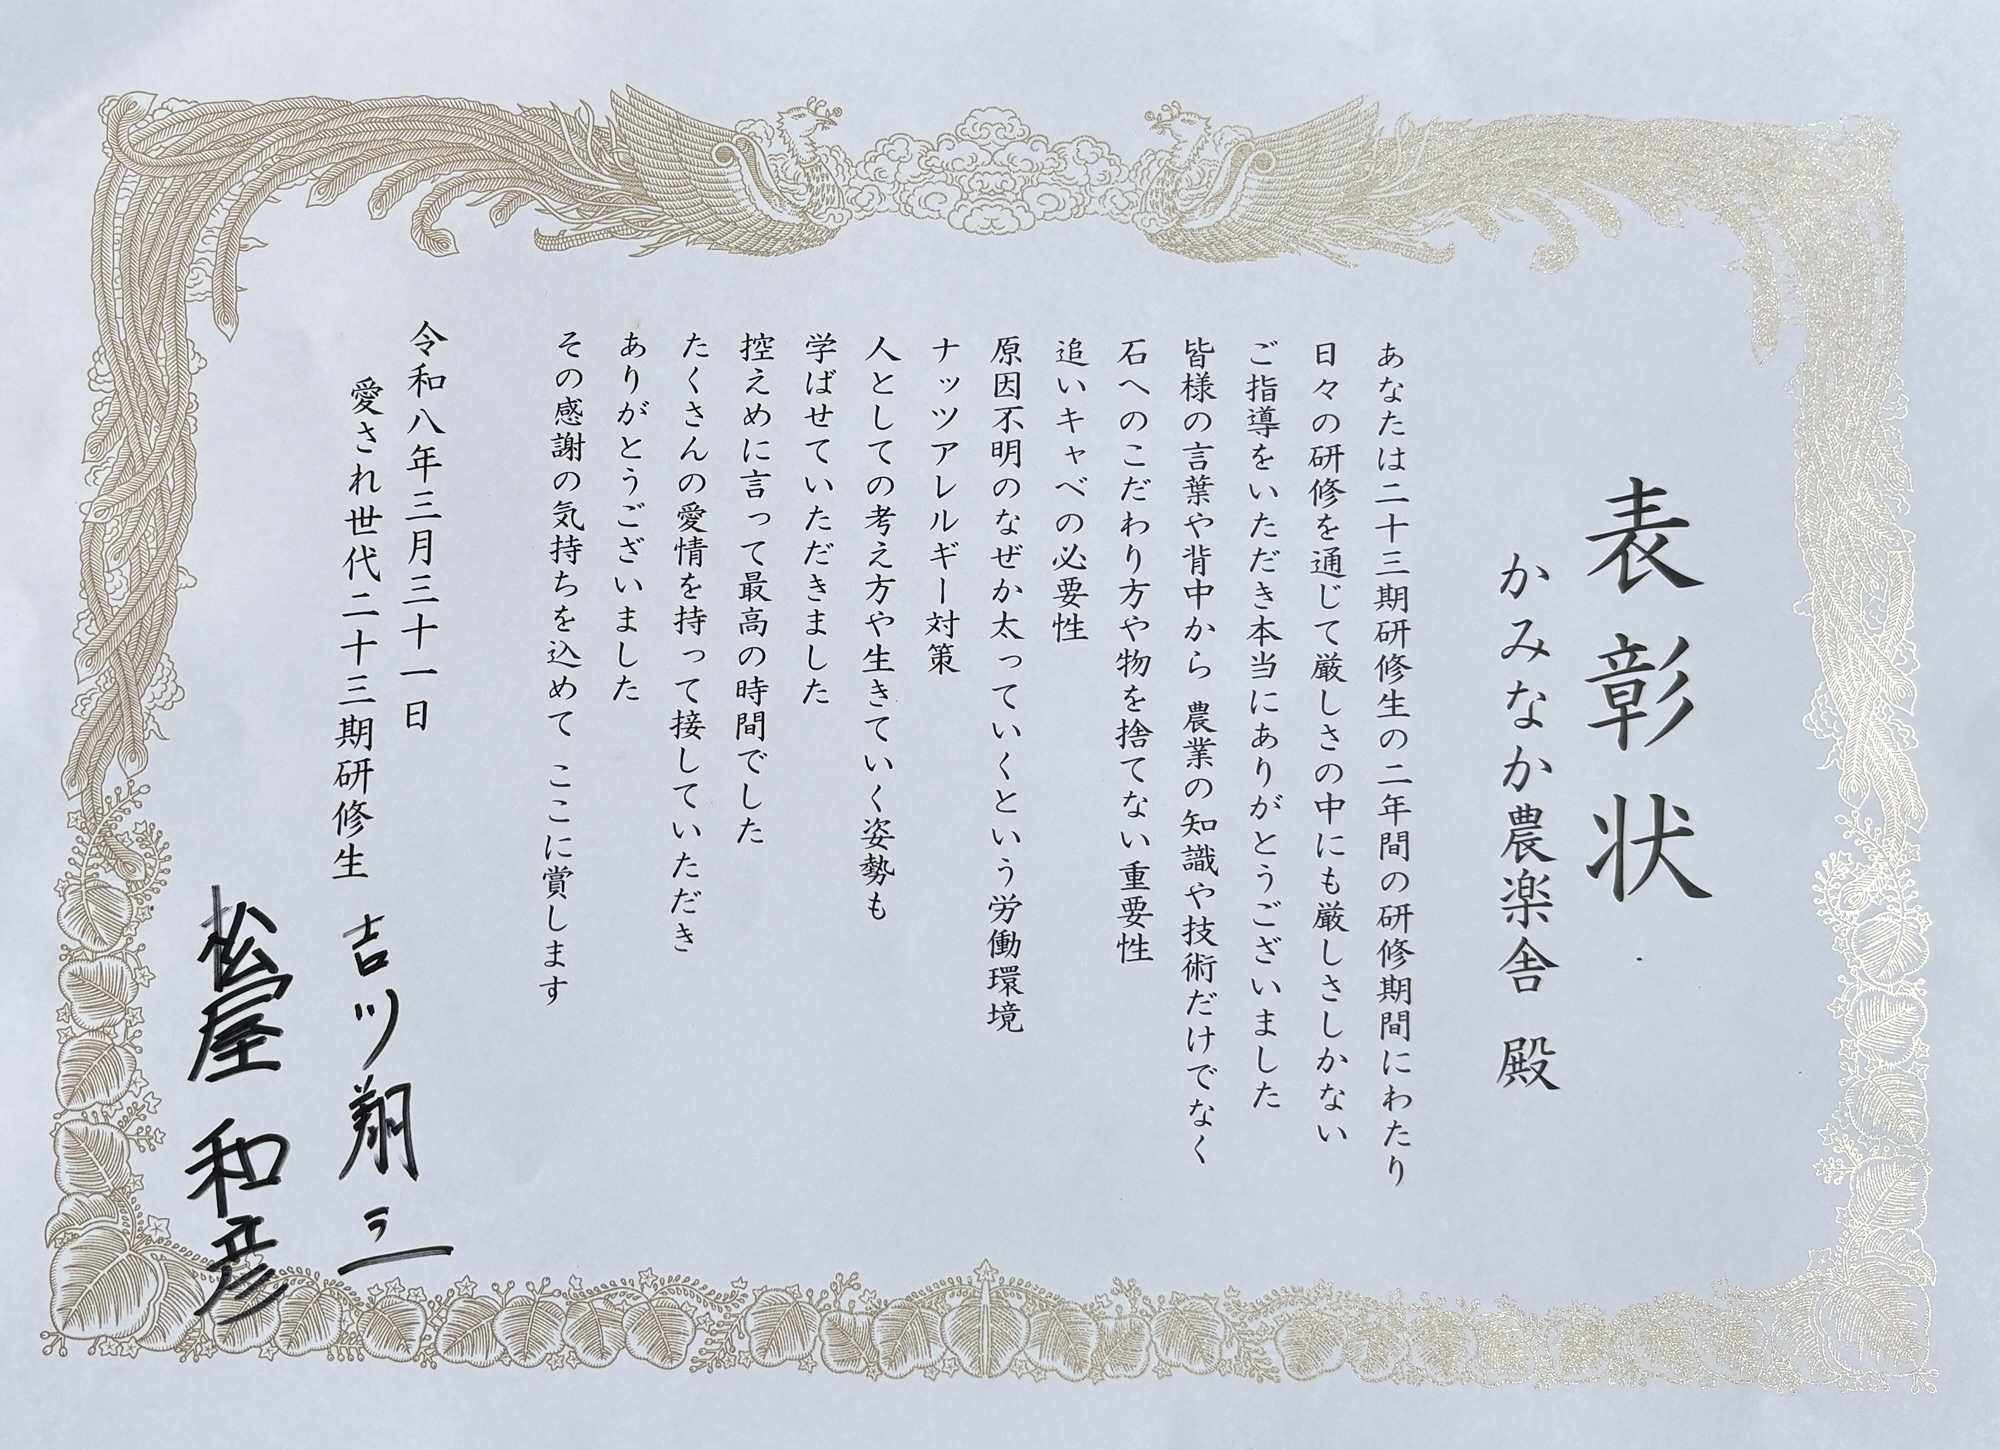 表彰状
かみなか農楽舎 殿
あなたは二十三期研修生の二年間の研修期間にわたり
日々の研修を通じて厳しさの中にも厳しさしかない
ご指導をいただき本当にありがとうございました
皆様の言葉や背中から 農業の知識や技術だけでなく
石へのこだわり方や物を捨てない重要性
追いキャベの必要性
原因不明のなぜか太っていくという労働環境
ナッツアレルギー対策
人としての考え方や生きていく姿勢も
学ばせていただきました
控えめに言って最高の時間でした
たくさんの愛情を持って接していただき
ありがとうございました
その感謝の気持ちを込めて ここに賞します
令和八年三月三十一日
愛され世代二十三期研修生 吉川翔三
松屋和彦